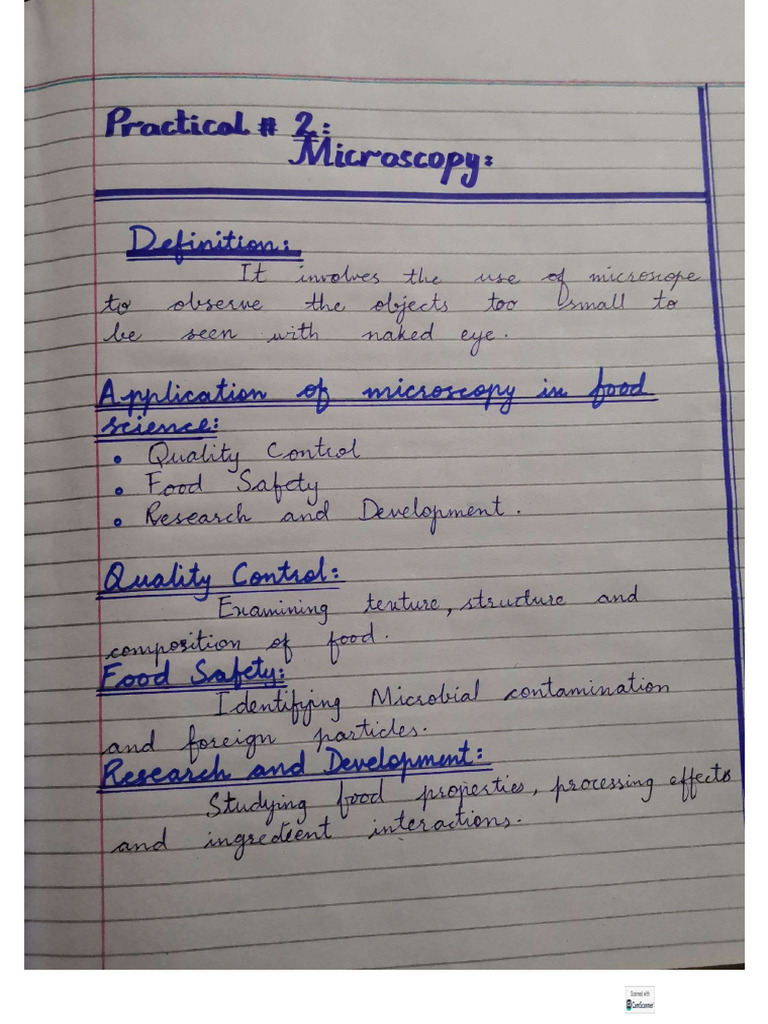 Practical # 2:
Microscopy:
Definition:
It involves the use of microscope
to observe the objects too small to
be seen with naked eye.
Application of microscopy in food
science:
• Quality Control
• Food Safety
• Research and Development.
Quality Control:
Examining texture, structure and
composition of food.
Food Safety:
Identifying Microbial contamination
and foreign particles.
Research and Development:
Studying food properties, processing effects
and ingredient interactions.
Scanned with
CamScanner